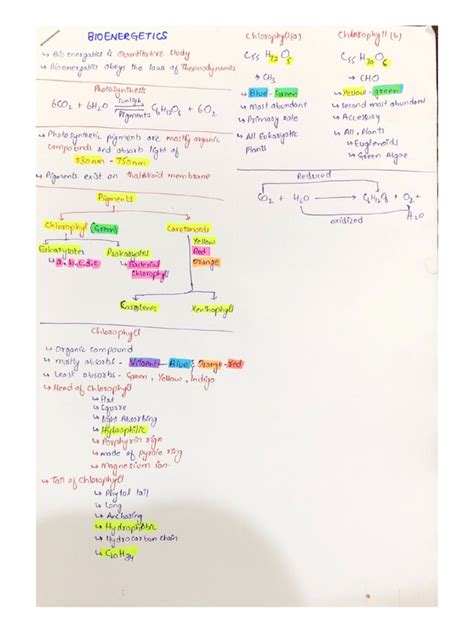 BIOENERGETICS
↳ Bioenergetics is Quantitative Study
↳ Bioenergetics obeys the laws of Thermodynamics
Photosynthesis
6CO2 + 6H2O Sunlight Pigments C6H12O6 + 6O2
↳ Photosynthetic pigments are mostly organic
compounds and absorb light of
380nm - 750nm
↳ Pigments exist on thalakoid membrane
Pigments
Chlorophyll (Green)
Carotenoids
Yellow
Red
Orange
Eukaryotes
↳ a.b.c.d.e
Prokaryotes
↳ Bacterial
Chlorophyll
Carotenes
Xanthophyll
Chlorophyll
↳ Organic compound
↳ mostly absorbs - Voilent - Blue & Orange - red
↳ Least absorbs - Green, Yellow, Indigo
↳ Head of Chlorophyll
↳ Flat
↳ Square
↳ Light Absorbing
↳ Hydrophilic
↳ Porphyrin rign
↳ made of pyrole ring
↳ magnesium ion.
↳ Tail of Chlorophyll
↳ Phytol tail
↳ Long
↳ Anchoring
↳ Hydrophobic
↳ Hydrocarbon chain
↳ C20H39
Chlorophyll(a)
C55 H72 O5
↳ CH3
↳ Blue - Green
↳ Most abundant
↳ Primary role
↳ All Eukaryotic
Plants
Chlorophyll (b)
C55 H70 O6
↳ CHO
↳ Yellow - green
↳ Second most abundant
↳ Accessory
↳ All, Plants
↳ Euglenoids
↳ Green Algae
Reduced
CO2 + H2O → C6H12O6 + O2 +
H2O
oxidized